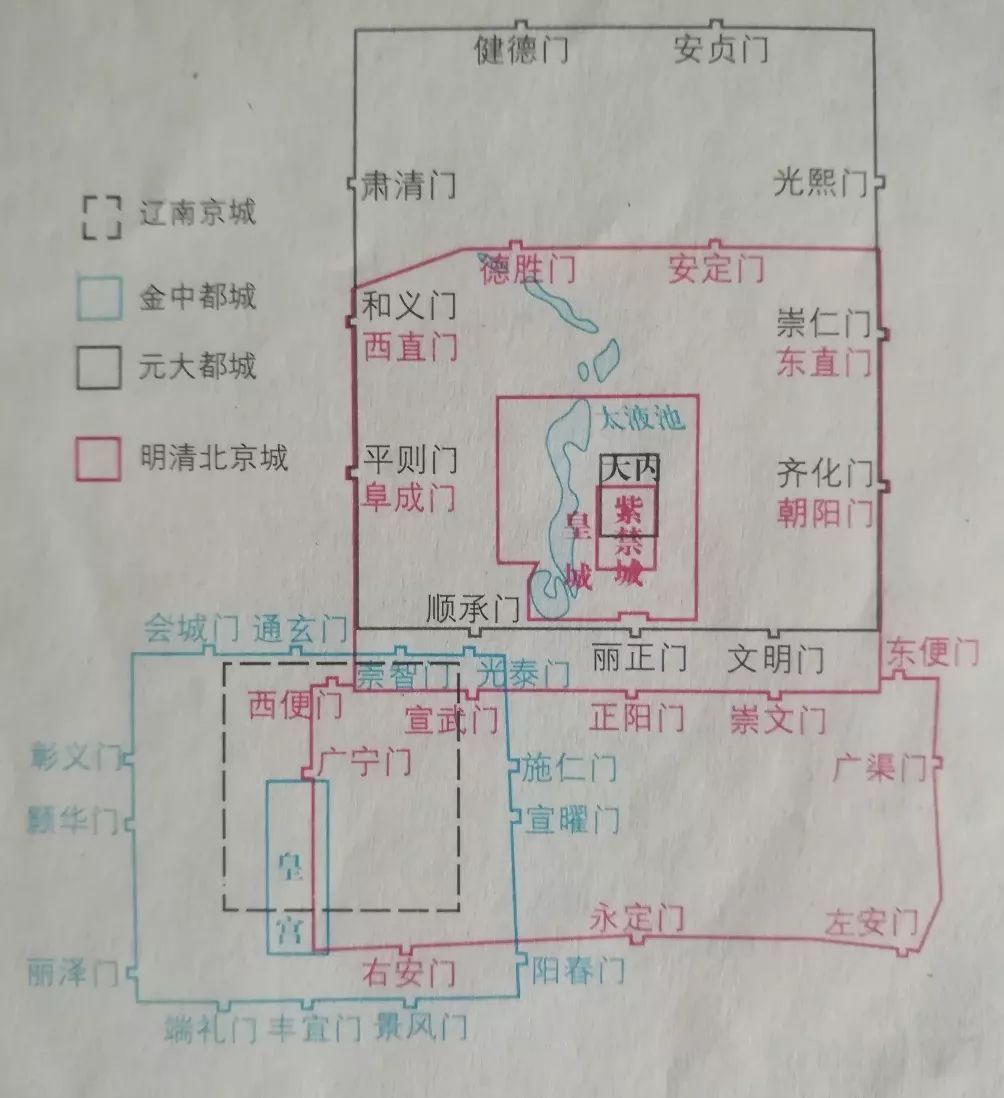 健德门 安贞门
肃清门 光熙门
辽南京城
德胜门 安定门
金中都城
和义门 崇仁门
西直门 东直门
元大都城
太液池
明清北京城
平则门 大内 齐化门
阜成门 紫禁城 朝阳门
皇城
顺承门
会城门 通玄门
丽正门 文明门 东便门
崇智门 光泰门
西便门 宣武门 正阳门 崇文门
彰义门 广宁门 施仁门 广渠门
颢华门 宣曜门
皇宫
永定门 左安门
丽泽门 右安门 阳春门
端礼门 丰宜门 景风门